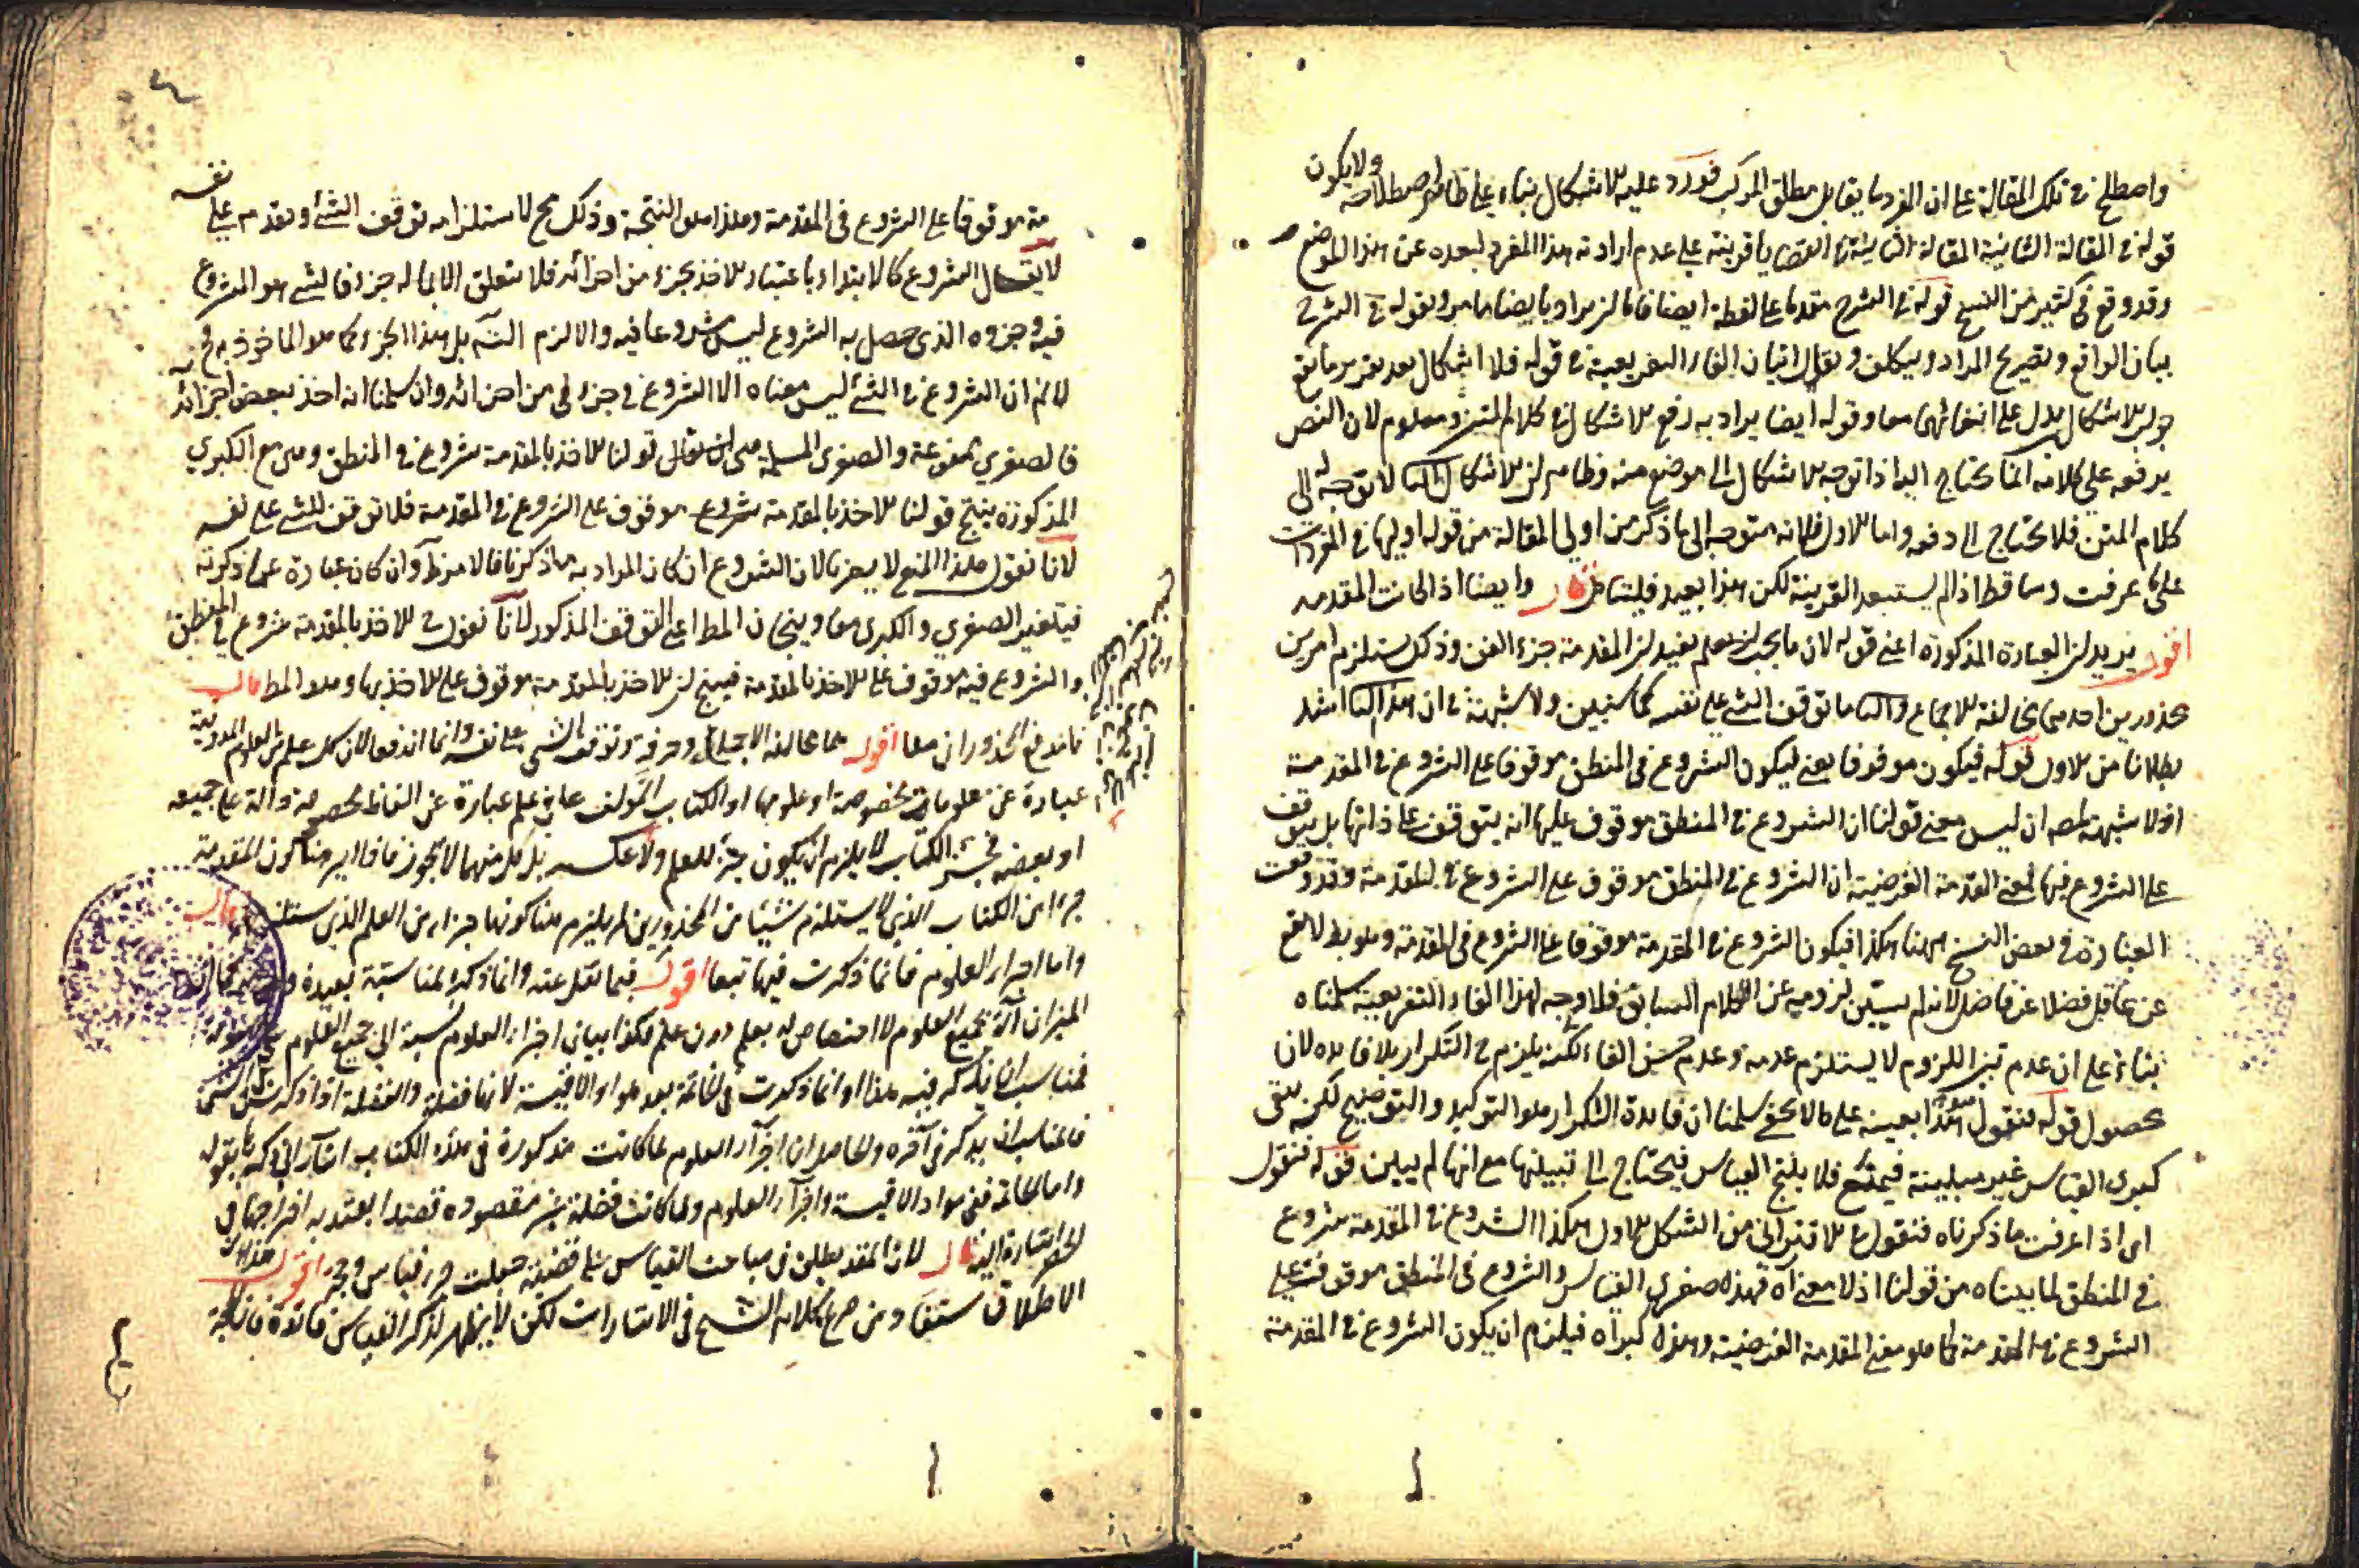 واصطلح في تلك المقالة على ان المفرد ما يقابل مطلق المركب فورد عليه الاشكال بناء على ظاهر اصطلاحه ولا يكون
قوله في المقالة الثانية المقالة الثانية في القضايا قرينة على عدم ارادته هذا المفرد لبعده عن هذا الموضع
وقد وقع في كثير من النسخ قوله في الشرح مقدما على لفظة ايضا فاما ان يراد بايضا ما مر وبقوله في الشرح
بيان الواقع وتصريح المراد وبتكلف ويقال اتيان الفاء التفريعية في قوله فلا اشكال بعد تقرير ما تقع
جواب الاشكال يدل على انتفائهما معا وقوله ايضا يراد به رفع الاشكال في كلام المتن ومعلوم لان النص
يرفعه على كلامه انما يحتاج اليه اذا توجه الاشكال الى موضع منه وظاهر ان الاشكال الثاني لا توجه له الى
كلام المتن فلا يحتاج الى دفعه واما الاول فلانه متوجه الى ما ذكر من اولى المقالة من قوله اوليها في المفردات
على ما عرفت وساقط اذا لم يستبعد القرينة لكن هذا بعيد فليتأمل قال وايضا اذا كانت المقدمة
اقول يريد ان العبارة المذكورة اعني قوله لان ما يجب ان يعلم يفيد ان المقدمة جزء الفن وذلك يستلزم امرين
محذورين احدهما مخالفة الاجماع والثاني توقف الشئ على نفسه كما سنبين ولا شبهة في ان هذا الثاني اشد
بطلانا من الاول قوله فيكون موقوفا يعني ليكون الشروع في المنطق موقوفا على الشروع في المقدمة
اذ لا شبهة لمه ان ليس معنى قولنا ان الشروع في المنطق موقوف عليها انه يتوقف على ذاتها بل يتوقف
على الشروع فيها فمعنى المقدمة الفرضية ان الشروع في المنطق موقوف على الشروع في المقدمة وقد وقعت
العبارة في بعض النسخ ههنا هكذا فيكون الشروع في المقدمة موقوفا على الشروع في المقدمة وهو بط لا يقع
عن عاقل فضلا عن فاضل لانه لم يتبين لزومه عن الكلام السابق فلا وجه لهذا الفاء التفريعية سلمناه
بناء على ان عدم تبين اللزوم لا يستلزم عدمه وعدم حسن الفاء لكنه يلزم في التكرار بلا فايدة لان
محصول قوله فنقول هو هذا بعينه على ما لا يخفى سلمنا ان فايدة التكرار هو التوكيد والتوضيح لكنه يبقى
كبرى القياس غير مبينة فيمتنع فلا ينتج القياس فيحتاج الى تبيينها مع انها لم يبين قوله فنقول
اى اذا عرفت ما ذكرناه فنقول على الاقتراني من الشكل الاول هكذا الشروع في المقدمة شروع
في المنطق لما بيناه من قولنا اذ لا معنى آه فهذه صغرى القياس والشروع في المنطق موقوف على
الشروع في المقدمة كما هو معنى المقدمة الفرضية وهذه كبراه فيلزم ان يكون الشروع في المقدمة
مة موقوفا على الشروع في المقدمة وهذا هو النتيجة وذلك مح لاستلزامه توقف الشئ وتقدمه على نفسه
لا يقال الشروع كالابتداء باعتبار الاخذ بجزء من اجزائه فلا يتعلق الا بما له جزء فالشئ هو المشروع
فيه وجزوه الذى حصل به الشروع ليس مشروعا فيه والا لزم التسه بل هذا الجزء كما هو الماخوذ به فح
لا نم ان الشروع في الشئ ليس معناه الا الشروع في جزء من اجزائه وان سلمنا انه اخذ ببعض اجزائه
فالصغرى ممنوعة والصغرى المسلمة هى ان يقال قولنا الاخذ بالمقدمة شروع في المنطق وهى مع الكبرى
المذكورة ينتج قولنا الاخذ بالمقدمة شروع موقوف على الشروع في المقدمة فلا توقف للشئ على نفسه
لانا نقول هذا المنع لا يضرنا لان الشروع ان كان المراد به ما ذكرنا فالامر ظ وان كان عبارة عما ذكرته
فيتغير الصغرى والكبرى معا وينتجان المط اعنى التوقف المذكور لانا نقول الاخذ بالمقدمة شروع في المنطق
والشروع فيه موقوف على الاخذ بالمقدمة فينتج ان الاخذ بالمقدمة موقوف على الاخذ بها وهو المط قال
فاندفع المحذوران معا اقول هما مخالفة الاجماع وخرقه وتوقف الشئ على نفسه وانما اندفعا لان كل علم من العلوم المدونة
عبارة عن معلومات مخصوصة او علومها او الكتاب المؤلف على علم عبارة عن الفاظ مخصوصة دالة على جميعه
او بعضه فجزء الكتاب لا يلزم ان يكون جزءا للعلم ولا عكسه بل كل منهما لا يجوز فاذا لزم هنا كون المقدمة
جزءا من الكتاب الذى لا يستلزم شيئا من المحذورين لم يلزم هنا كونها جزءا من العلم الذى يستلزمهما قال
واما اجزاء العلوم فانما ذكرت فيها تبعا اقول فيما نقل عنه وانما ذكر لمناسبة بعيدة
الميزان آلة لجميع العلوم لا اختصاص له بعلم دون علم فكذا بيان اجزاء العلوم نسبة الى جميع العلوم
فناسب ان يذكر فيه هذا او انما ذكرت في الخاتمة بعد مواد الاقيسة لانها فضلة والفضلة اذا ذكرت في شئ
فالمناسب ان يذكر في آخره والحاصل ان اجزاء العلوم لما كانت مذكورة في هذه الكتاب اشار الى ذكرها بقوله
واما الخاتمة ففي مواد الاقيسة واجزاء العلوم ولما كانت فضلة غير مقصودة قصدا يعتد به اخراجها في
لحق اشارة اليه قال لان المقدمة يطلق في مباحث القياس على قضية جعلت جزء قياس وحجة اقول هذا
الاطلاق مستفاد من صريح كلام الشيخ في الاشارات لكن لا يظهر لذكر القياس فائدة فان الحجة